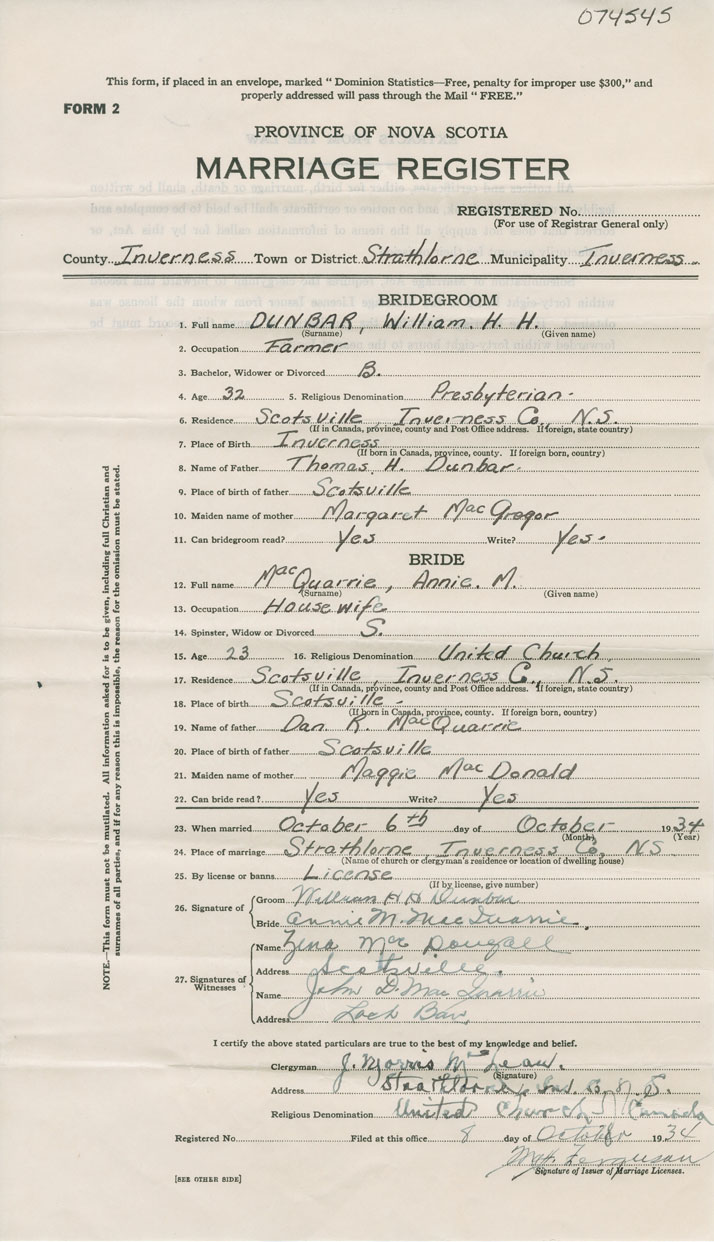 074545
This form, if placed in an envelope, marked " Dominion Statistics—Free, penalty for improper use $300," and
properly addressed will pass through the Mail " FREE."
FORM 2
PROVINCE OF NOVA SCOTIA
MARRIAGE REGISTER
REGISTERED No.
(For use of Registrar General only)
County Inverness Town or District Strathlorne Municipality Inverness
BRIDEGROOM
1. Full name DUNBAR, William. H. H.
(Surname) (Given name)
2. Occupation Farmer
3. Bachelor, Widower or Divorced B.
4. Age 32 5. Religious Denomination Presbyterian
6. Residence Scotsville, Inverness Co., N.S.
(If in Canada, province, county and Post Office address. If foreign, state country)
7. Place of Birth Inverness
(If born in Canada, province, county. If foreign born, country)
8. Name of Father Thomas. H. Dunbar
9. Place of birth of father Scotsville
10. Maiden name of mother Margaret MacGregor
11. Can bridegroom read? Yes Write? Yes
BRIDE
12. Full name MacQuarrie, Annie. M.
(Surname) (Given name)
13. Occupation Housewife
14. Spinster, Widow or Divorced S.
15. Age 23 16. Religious Denomination United Church
17. Residence Scotsville, Inverness C., N.S.
(If in Canada, province, county and Post Office address. If foreign, state country)
18. Place of birth Scotsville
(If born in Canada, province, county. If foreign born, country)
19. Name of father Dan R. MacQuarrie
20. Place of birth of father Scotsville
21. Maiden name of mother Maggie MacDonald
22. Can bride read? Yes Write? Yes
23. When married October 6th day of October 1934
(Month) (Year)
24. Place of marriage Strathlorne, Inverness Co, NS
(Name of church or clergyman's residence or location of dwelling house)
25. By license or banns License
(If by license, give number)
26. Signature of Groom William H H Dunbar
Bride Annie M. MacQuarrie
27. Signatures of Witnesses Name Zena MacDougall
Address Scottsville.
Name John D. MacQuarrie
Address Loch Ban
I certify the above stated particulars are true to the best of my knowledge and belief.
Clergyman J. Morris McLean.
(Signature)
Address Strathlorne, Inv. Co. N.S.
Religious Denomination United Church of Canada
Registered No. Filed at this office 8 day of October 1934
Ferguson
Signature of Issuer of Marriage Licenses.
[SEE OTHER SIDE]
NOTE.—This form must not be mutilated. All information asked for is to be given, including full Christian and
surnames of all parties, and if for any reason this is impossible, the reason for the omission must be stated.